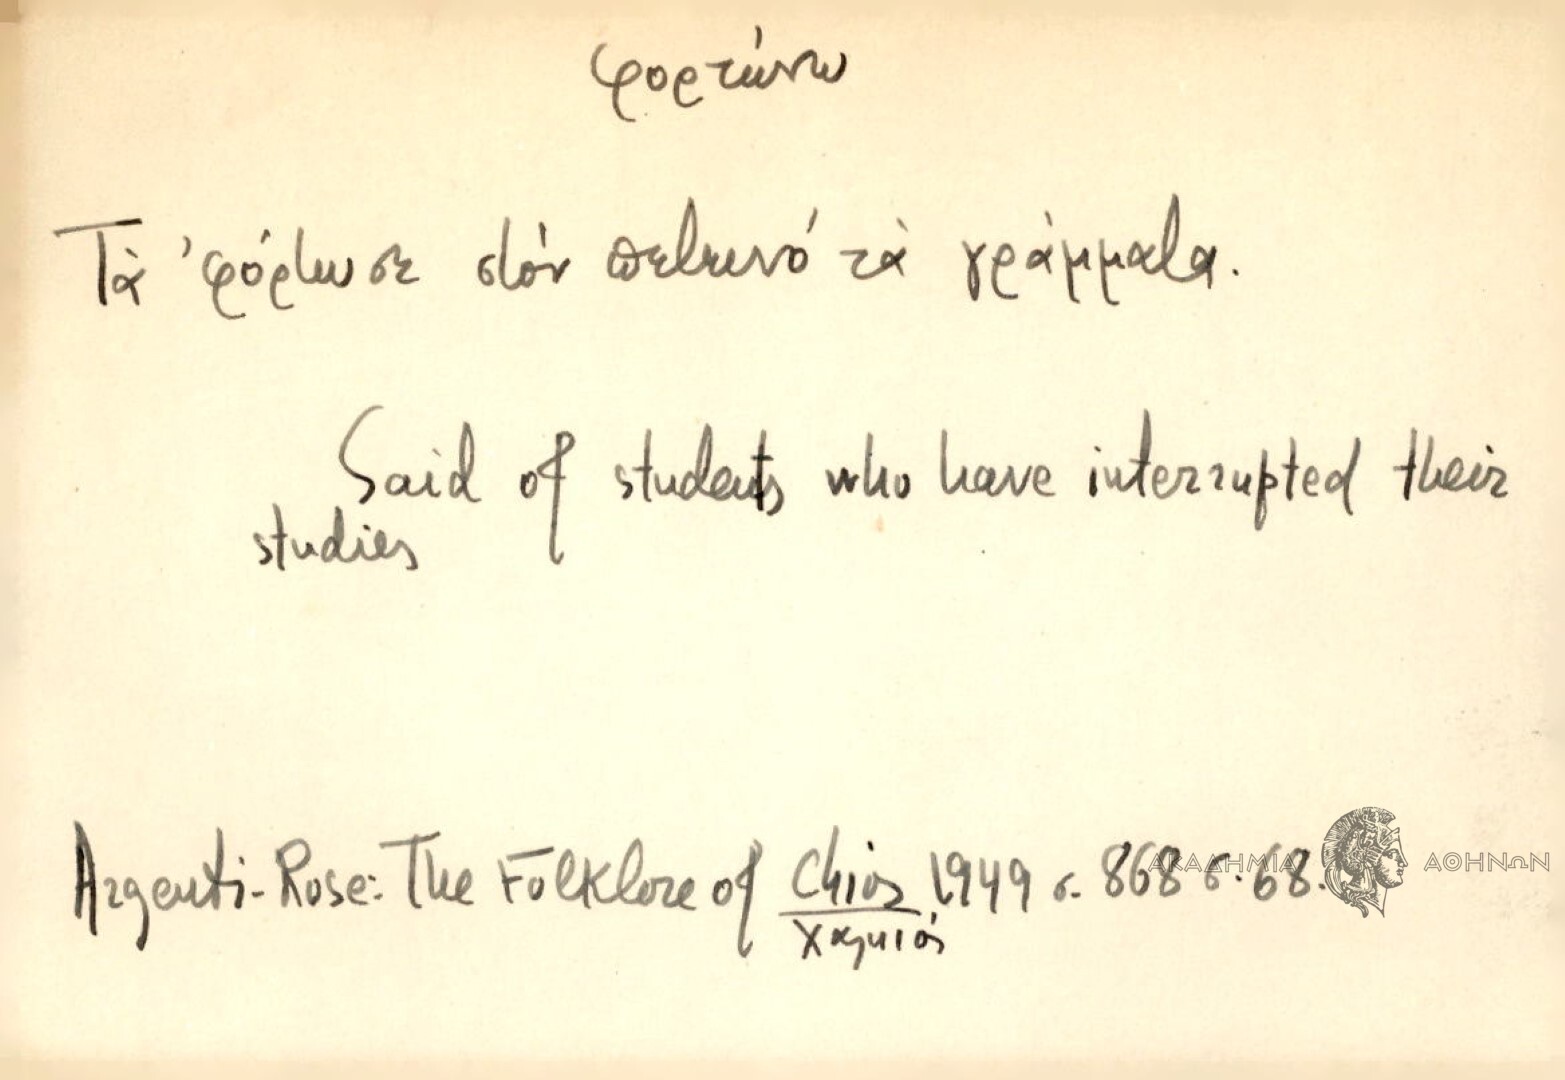 φορτώνω
Τὰ 'φόρτωσε στὸν πετεινό τὰ γράμματα.
Said of students who have interrupted their
studies
Argenti-Rose: The Folklore of Chios, 1949 σ. 868 σ. 68.
ΑΚΑΔΗΜΙΑ ΑΘΗΝΩΝ